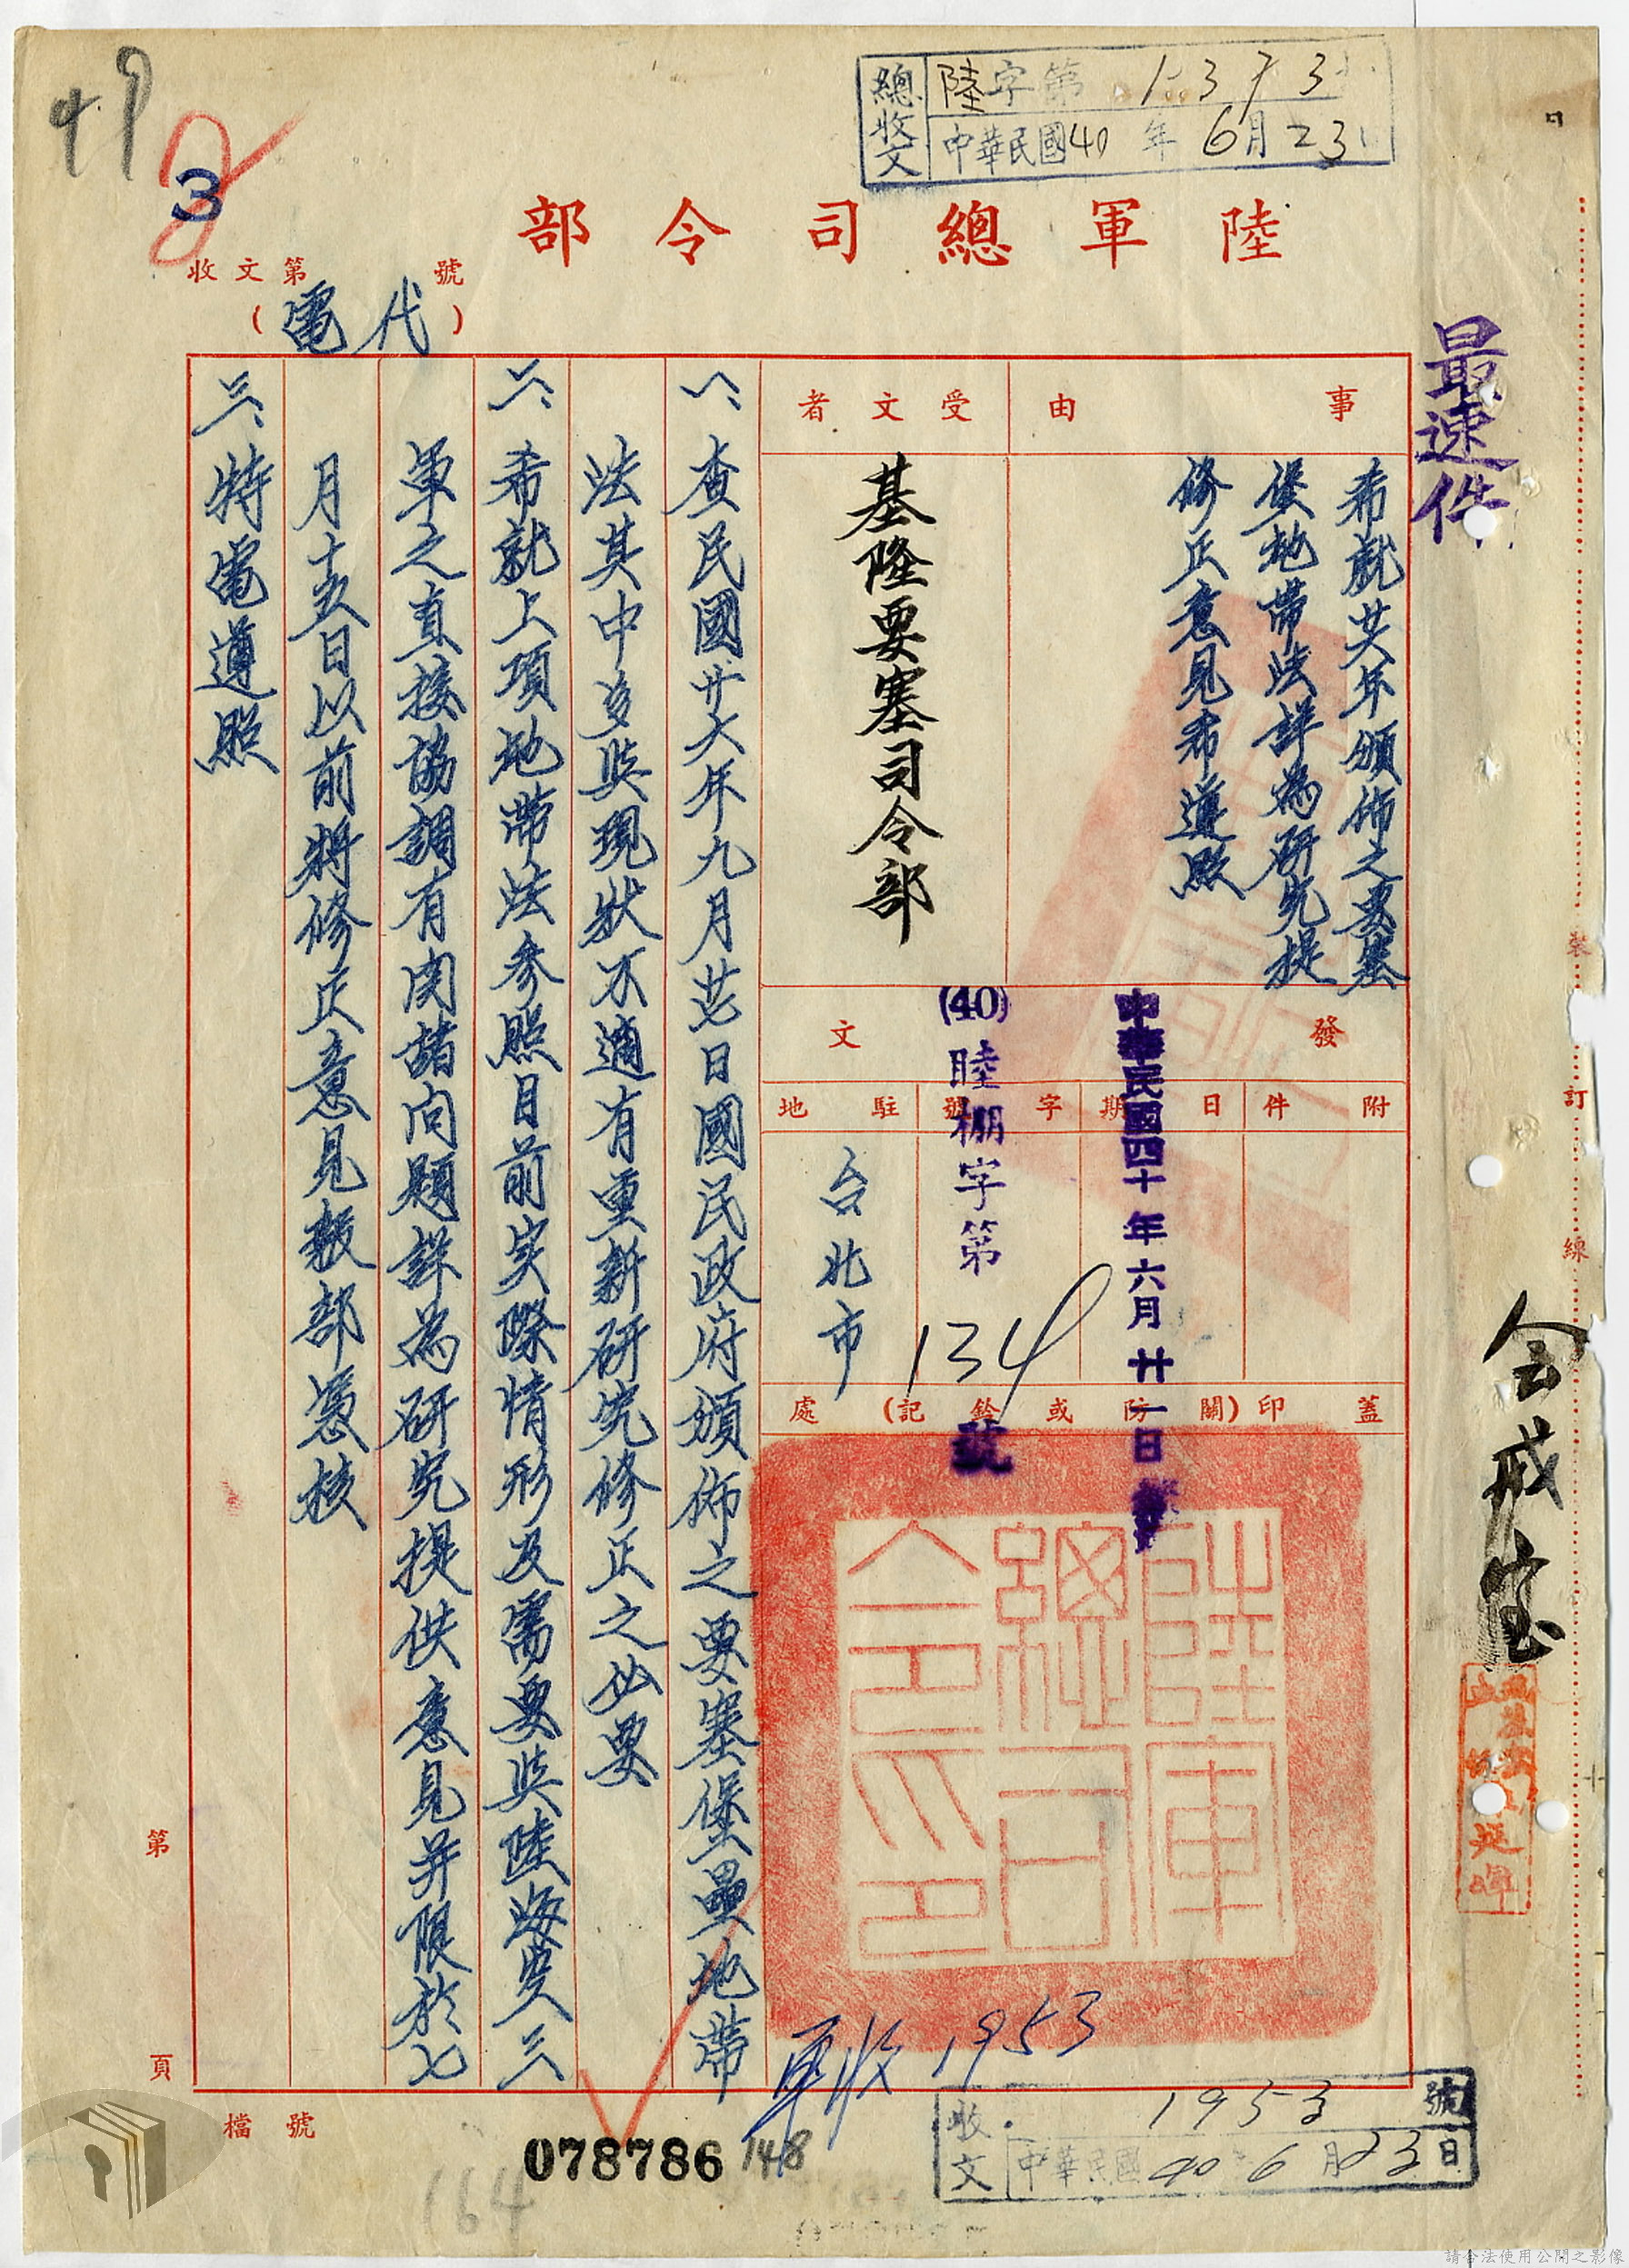 總收文
陸字第1373
中華民國40年6月23
陸軍總司令部
49
3
收文第 號
(代電)
最速件
事由
希就廿六年頒佈之要塞
堡地帶法詳為研究提
修正意見希遵照
受文者
基隆要塞司令部
發文
附件
日期
中華民國四十年六月廿一日發
字號
(40)睦棚字第134號
駐地
台北市
蓋印(關防或鈐記)處
陸軍總司令印
一、查民國廿六年九月芒日國民政府頒佈之要塞堡壘地帶
法其中多與現狀不適有重新研究修正之必要
二、希就上項地帶法參照目前实際情形及需要與陸海空三
軍之直接協調有関諸问題詳為研究提供意見并限於七
月十五日以前將修正意見報部憑核
三、特電遵照
裝
訂
線
第 頁
軍收1953
收文
1953號
中華民國40 6月23日
檔號
078786
148
164
請合法使用公開之影像